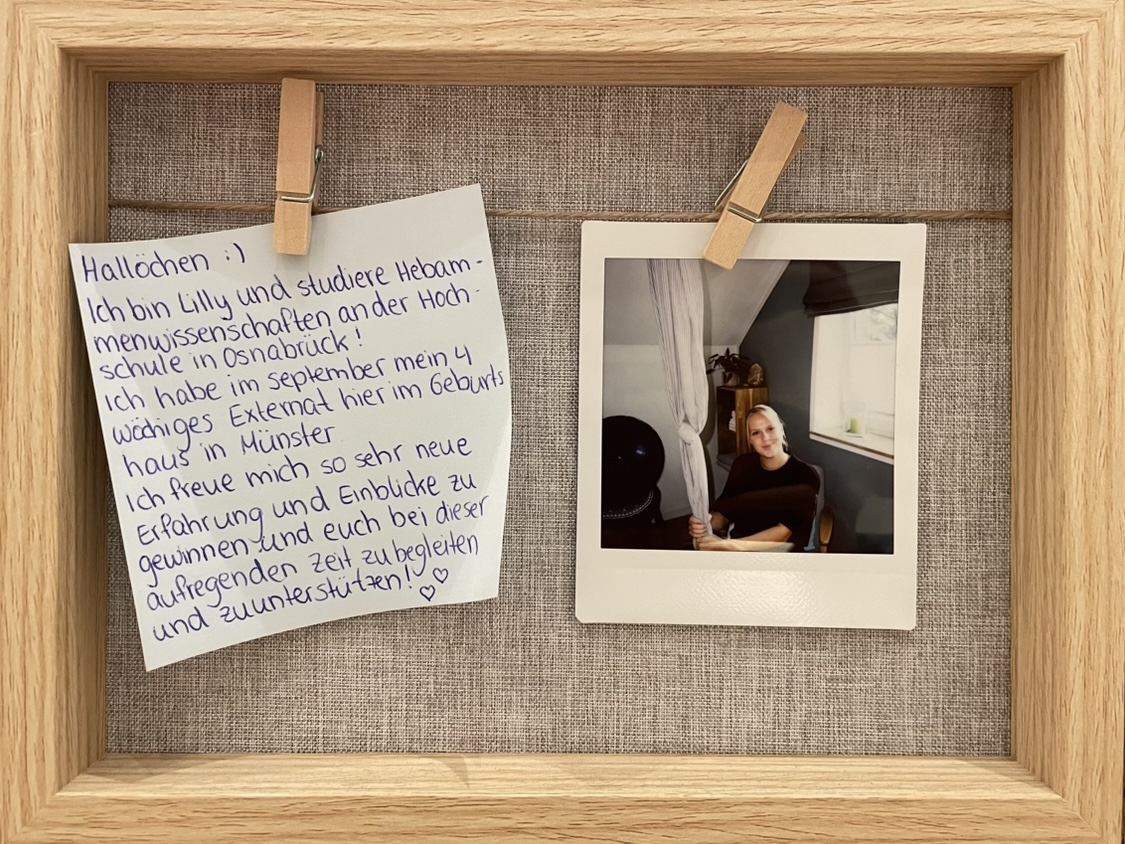 Hallöchen :)
Ich bin Lilly und studiere Hebam-
menwissenschaften an der Hoch-
schule in Osnabrück!
Ich habe im september mein 4
wöchiges Externat hier im Geburts
haus in Münster
Ich freue mich so sehr neue
Erfahrung und Einblicke zu
gewinnen und euch bei dieser
aufregenden Zeit zu begleiten
und zu unterstützen! ♡♡